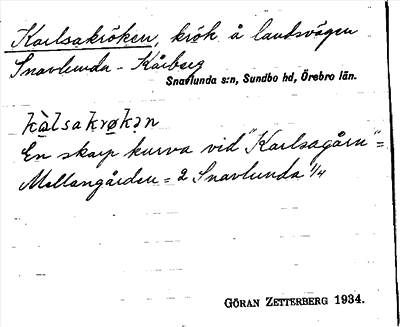 Karlsakröken, krök å landsvägen
Snavlunda - Kårberg
Snavlunda s:n, Sundbo hd, Örebro län.
kàlsakrøkən
En skarp kurva vid "Karlsagårn" =
Mellangården = 2 Snavlunda 1/4
GÖRAN ZETTERBERG 1934.